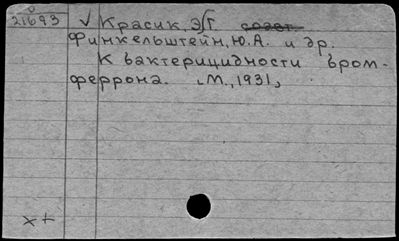 21693 √ Красик, Э.Г. соавт.
Финкельштейн, Ю.А. и др.
К вактерицидности бром-
феррона. М., 1931,
х+